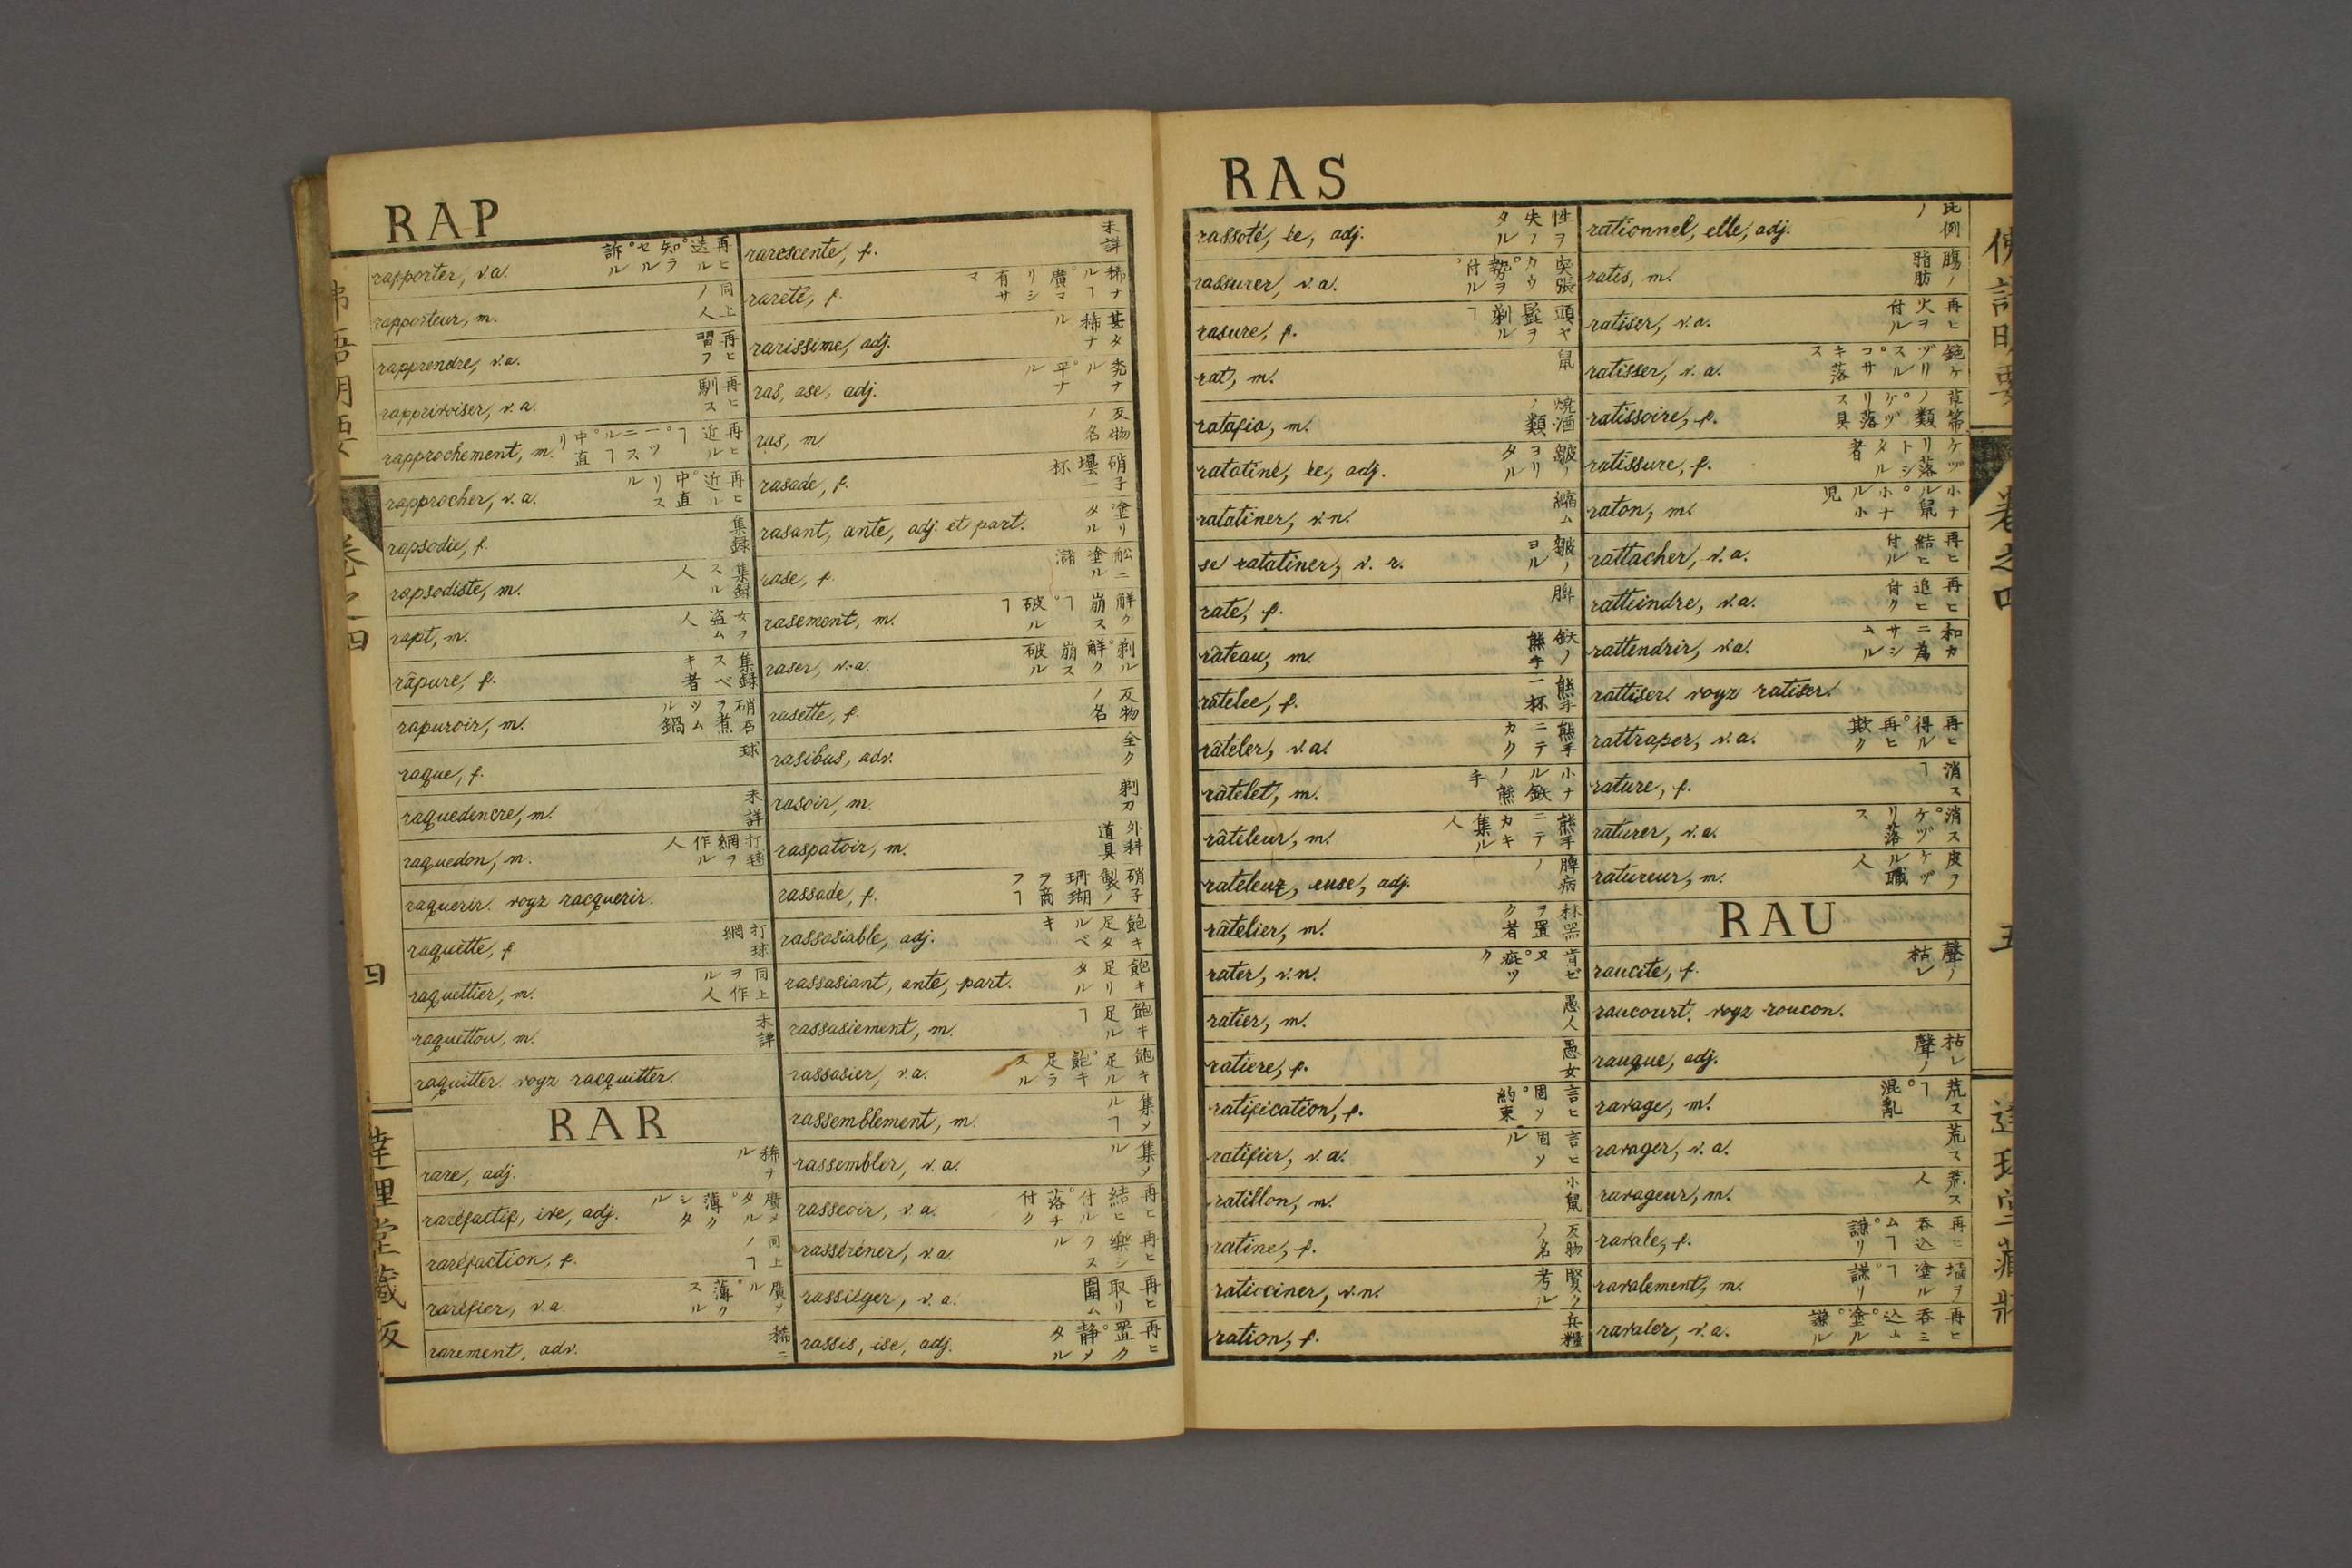 RAP
rapporter, v.a. 再ヒ送ル°知ラセル°訴ル
rapporteur, m. 同上ノ人
rapprendre, v.a. 再ヒ習フ
rapprivoiser, v.a. 再ヒ馴ス
rapprochement, m. 再ヒ近ルヿ°一ツニスルヿ°中直リ
rapprocher, v.a. 再ヒ近ル°中直リスル
rapsodie, f. 集録
rapsodiste, m. 集録スル人
rapt, m. 女ヲ盗ム人
râpure, f. 集録スベキ者
rapuroir, m. 硝石ヲ煮ツムル鍋
raque, f. 球
raquedencre, m. 未詳
raquedon, m. 打毬網ヲ作ル人
raquerir. voyz racquerir.
raquette, f. 打球網
raquettier, m. 同上ヲ作ル人
raquettou, m. 未詳
raquitter voyz racquitter.
RAR
rare, adj. 稀ナル
raréfactif, ive, adj. 廣メタル°薄クシタル
raréfaction, f. 同上ノヿ
raréfier, v.a. 廣メル°薄クスル
rarement, adv. 稀ニ
rarescente, f. 未詳
rareté, f. 稀ナルヿ
rarissime, adj. 甚タ稀ナル
ras, ase, adj. 禿ナル°平ナル
ras, m. 反物ノ名
rasade, f. 硝子壜一杯
rasant, ante, adj. et part. 塗リタル
rase, f. 舩ニ塗ル
rasement, m. 解ク崩スヿ°破ルヿ
raser, v.a. 剃ル°解ク崩ス破ル
rasette, f. 反物ノ名
rasibus, adv. 全ク
rasoir, m. 剃刀
raspatoir, m. 外科道具
rassade, f. 硝子製ノ珊瑚ヲ商フヿ
rassasiable, adj. 飽キ足タルベキ
rassasiant, ante, part. 飽キ足リタル
rassasiement, m. 飽キ足ルヿ
rassasier, v.a. 飽キ足ル°飽キ足ラスル
rassemblement, m. 集メルヿ
rassembler, v.a. 集メル
rasseoir, v.a. 再ヒ結ヒ付ル°落チ付ク
rasséréner, v.a. 再ヒ樂シクスル
rassiéger, v.a. 再ヒ取リ圍ム
rassis, ise, adj. 再ヒ置ク°静メタル
RAS
rassoté, ée, adj. 性ヲ失ノタル
rassurer, v.a. 突張カウ°勢ヲ付ル
rasure, f. 頭ヤ髭ヲ剃ルヿ
rat, m. 鼠
ratafia, m. 焼酒ノ類
ratatiné, ée, adj. 皺ノヨリタル
ratatiner, v.n. 縮ム
se ratatiner, v. r. 皺ノヨル
rate, f. 脾
râteau, m. 鉄ノ熊手
râtelee, f. 熊手一杯
râteler, v.a. 熊手ニテカク
râtelet, m. 小ナル鉄ノ熊手
râteleur, m. 熊手ニテカキ集ル人
rateleux, euse, adj. 脾病ノ
râtelier, m. 秣ヲ置ク者
rater, v.n. 肯ゼヌ
ratier, m. 愚人
ratiere, f. 愚女
ratification, f. 言ヒ固ソ°約束
ratifier, v.a. 言ヒ固ソル
ratillon, m. 小鼠
ratine, f. 反物ノ名
ratiociner, v.n. 賢ク考ル
ration, f. 兵糧
rationnel, elle, adj. 比例ノ
ratis, m. 腸ノ脂肪
ratiser, v.a. 再ヒ火ヲ付ル
ratisser, v.a. 鉋ケヅリスル°コサキ落ス
ratissoire, f. 草箒ノ類°ケヅリ落ス具
ratissure, f. ケヅリ落シトタル者
raton, m. 小ナル鼠°小ナル小児
rattacher, v.a. 再ヒ結ヒ付ル
ratteindre, v.a. 再ヒ追ヒ付ク
rattendrir, v.a. 和カニ為サシムル
rattiser. voyz ratiser.
rattraper, v.a. 再ヒ得ル°再ヒ欺ク
rature, f. 消スヿ
raturer, v.a. 消ス°ケヅリ落ス
ratureur, m. 皮ヲケヅル職人
RAU
raucité, f. 聲ノ枯レ
raucourt. voyz roucon.
rauque, adj. 枯レ聲ノ
ravage, m. 荒スヿ°混亂
ravager, v.a. 荒ス
ravageur, m. 荒ス人
ravale, f. 再ヒ吞込ムヿ°謙リ
ravalement, m. 墻ヲ塗ルヿ°謙リ
ravaler, v.a. 再ヒ吞ミ込ム°塗ル°謙ル
卷之四
五
四